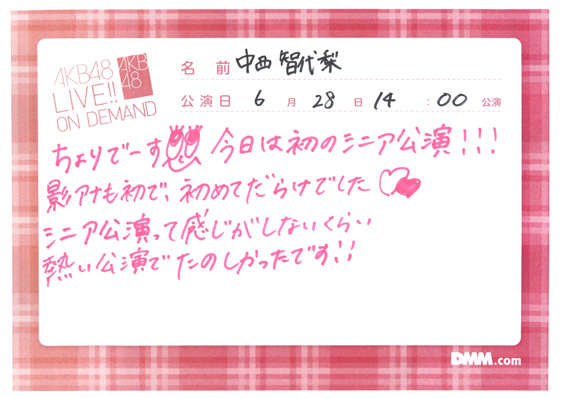 AKB48
LIVE!!
ON DEMAND
AKB
48
名 前 中西 智代梨
公演日 6 月 28 日 14 : 00 公演
ちょりでーす 今日は初のシニア公演!!!
影アナも初で、初めてだらけでした
シニア公演って感じがしないくらい
熱い公演でたのしかったです!!
DMM.com